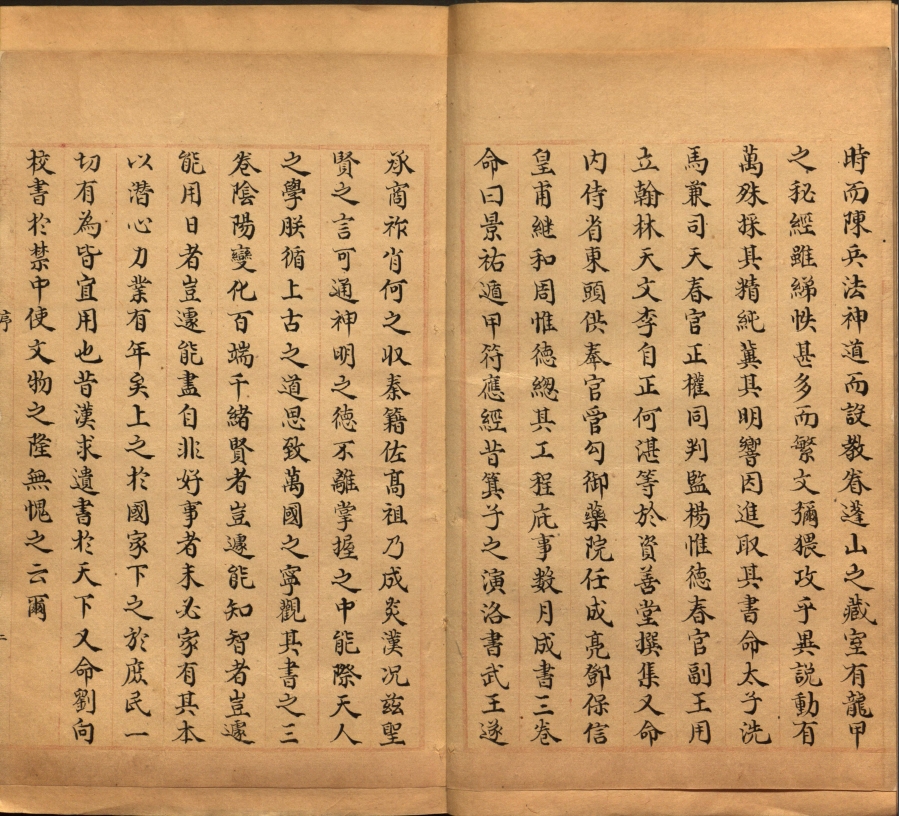 時而陳兵法神道而設教眷蓬山之藏室有龍甲
之秘經雖綈帙甚多而繁文彌猥攻乎異説動有
萬殊採其精純冀其明響因進取其書命太子洗
馬兼司天春官正權同判監楊惟德春官副王用
立翰林天文李自正何湛等於資善堂撰集又命
内侍省東頭供奉官管勾御藥院任成亮鄧保信
皇甫継和周惟德緫其工程庇事数月成書三卷
命曰景祐遁甲符應經昔箕子之演洛書武王遂
承商祚肖何之収秦籍佐髙祖乃成炎漢况兹聖
賢之言可通神明之德不離掌握之中能際天人
之學朕循上古之道思致萬國之寧觀其書之三
卷陰陽變化百端千緒賢者豈遽能知智者豈遽
能用日者豈遽能盡自非好事者未必家有其本
以潜心力業有年矣上之於國家下之於庶民一
切有為皆宜用也昔漢求遺書於天下又命劉向
校書於禁中使文物之隆無愧之云爾
序
二